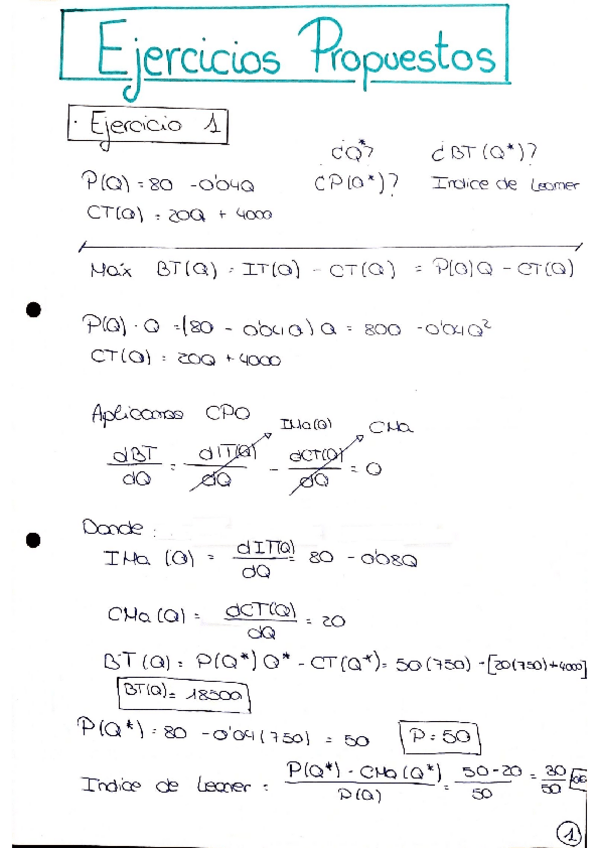 Ejercicios Propuestos
· Ejercicio 1
¿Q*? ¿BT(Q*)?
P(Q) = 80 - 0'04Q ¿P(Q*)? Indice de Lerner
CT(Q) = 20Q + 4000
Máx BT(Q) = IT(Q) - CT(Q) = P(Q)Q - CT(Q)
P(Q) · Q = (80 - 0'04Q) Q = 80Q - 0'04Q²
CT(Q) = 20Q + 4000
Aplicamos CPO IMa(Q) CMa
dBT/dQ = dIT(Q)/dQ - dCT(Q)/dQ = 0
Donde:
IMa (Q) = dIT(Q)/dQ = 80 - 0'08Q
CMa (Q) = dCT(Q)/dQ = 20
BT(Q) = P(Q*) Q* - CT(Q*) = 50(750) - [20(750)+4000]
BT(Q) = 18500
P(Q*) = 80 - 0'04(750) = 50 P = 50
Indice de Lerner = P(Q*) - CMa(Q*)/P(Q) = 50-20/50 = 30/50
1